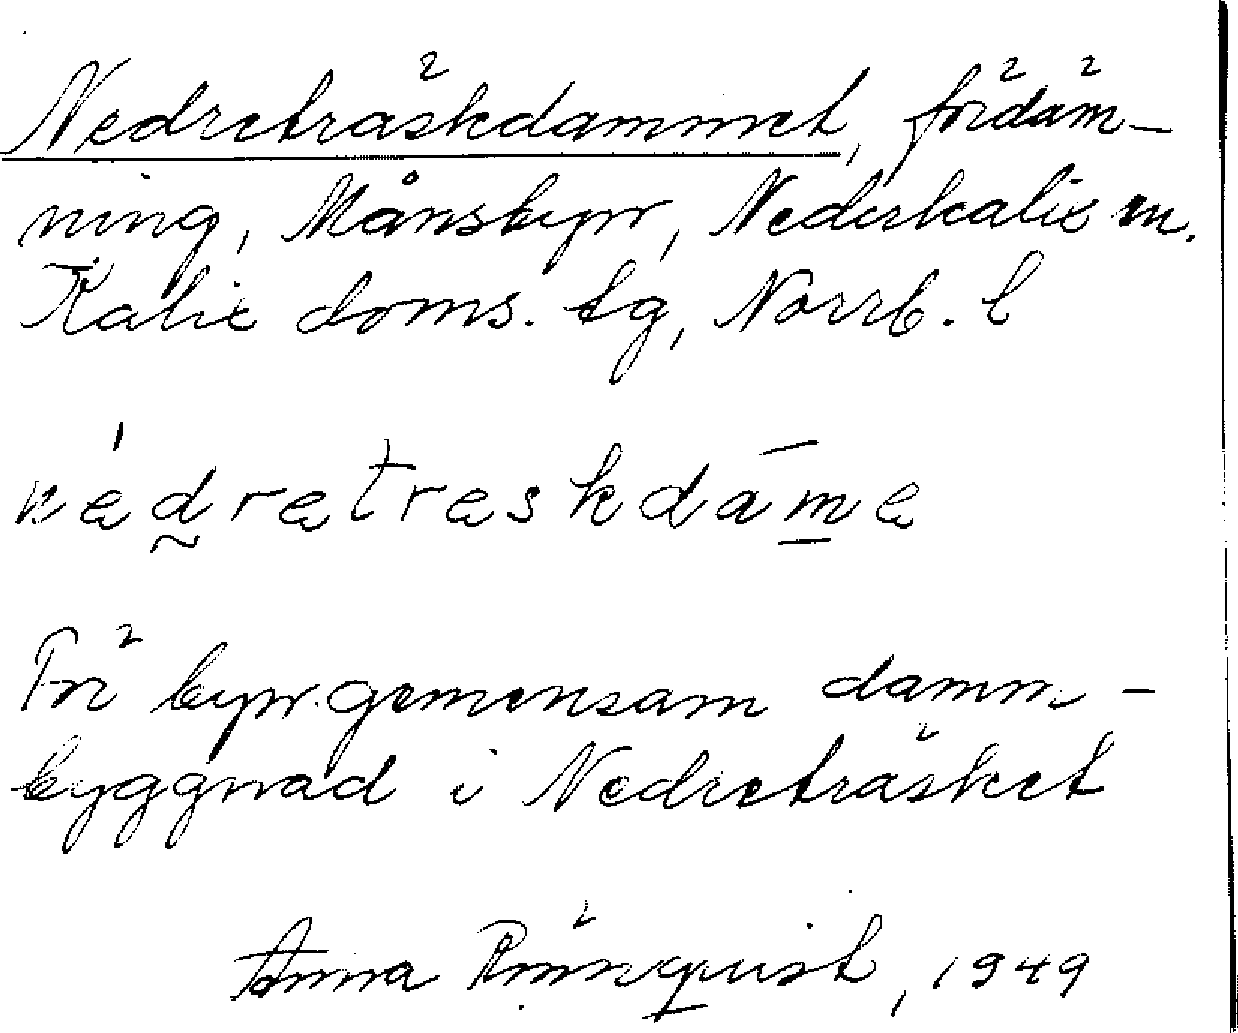 Nedreträskdammet, fördäm-
ning, Månsbyn, Nederkalix sn.
Kalix doms. tg, Norrb. l
nédrętręskdám̲ę
För byn gemensam damm-
byggnad i Nedreträsket
Anna Rönnquist, 1949